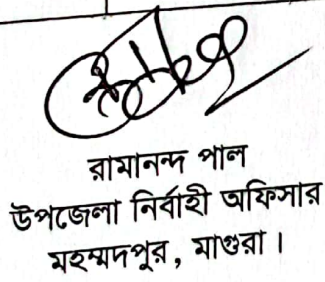 রামানন্দ পাল
উপজেলা নির্বাহী অফিসার
মহম্মদপুর, মাগুরা।